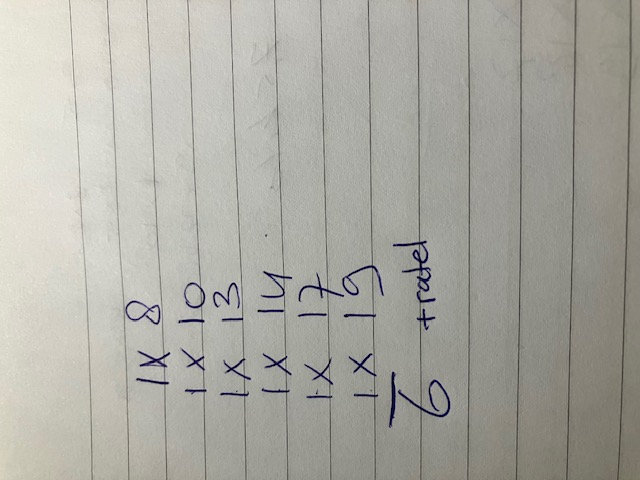 1 x 8
1 x 10
1 x 13
1 x 14
1 x 17
1 x 19
6 + ratel